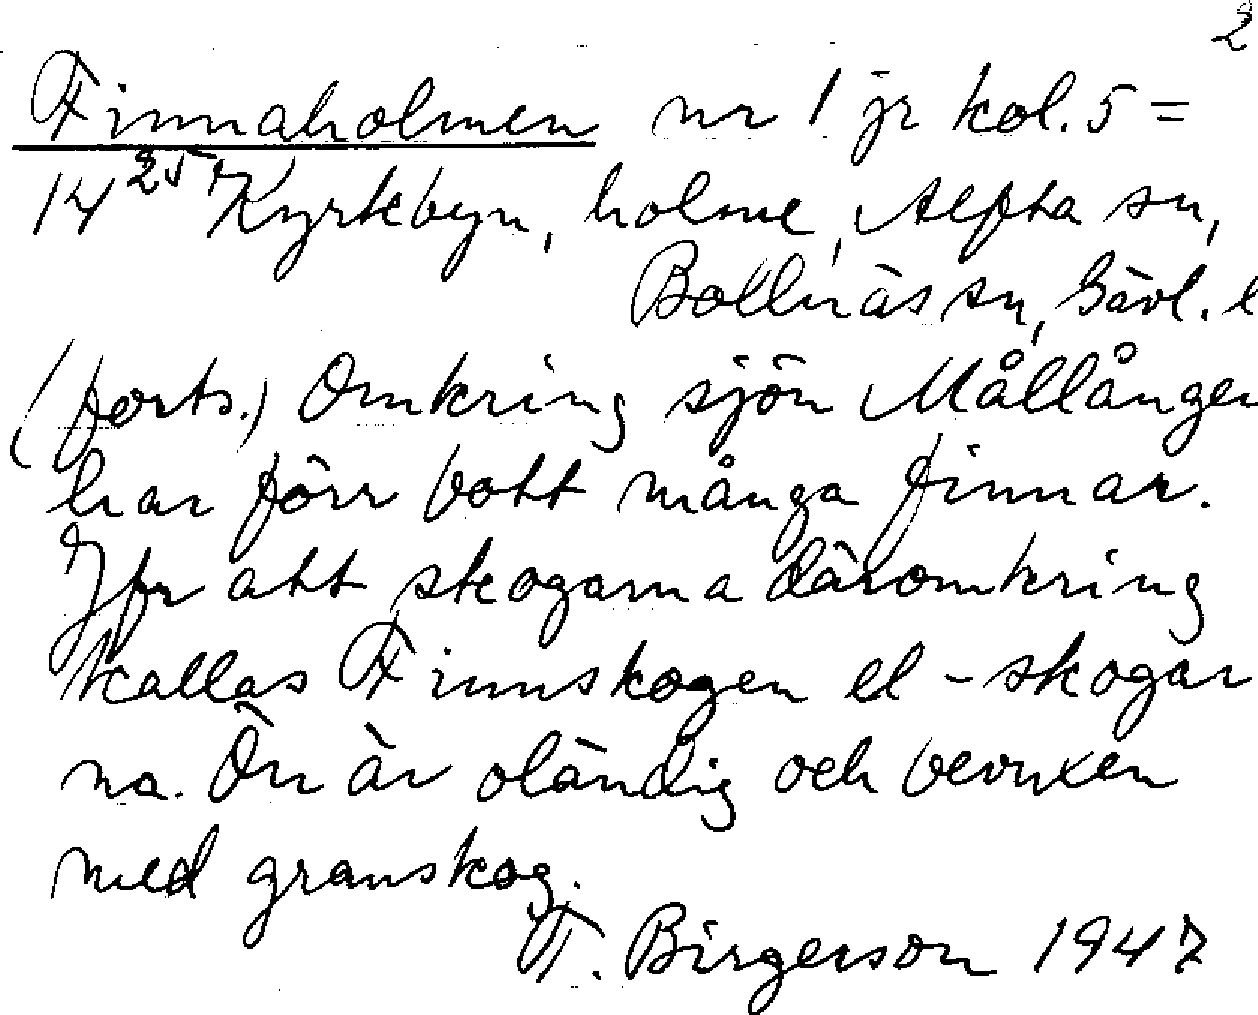 2
Finnaholmen nr 1 jr kol. 5 =
14 25 Kyrkbyn, holme, Alfta sn,
Bollnäs sn, Gävl. l
(forts.) Omkring sjön Mållången
har förr bott många finnar.
Jfr att skogarna däromkring
kallas Finnskogen el -skogar
na. Ön är oländig och bevuxen
med granskog.
F. Birgerson 1947